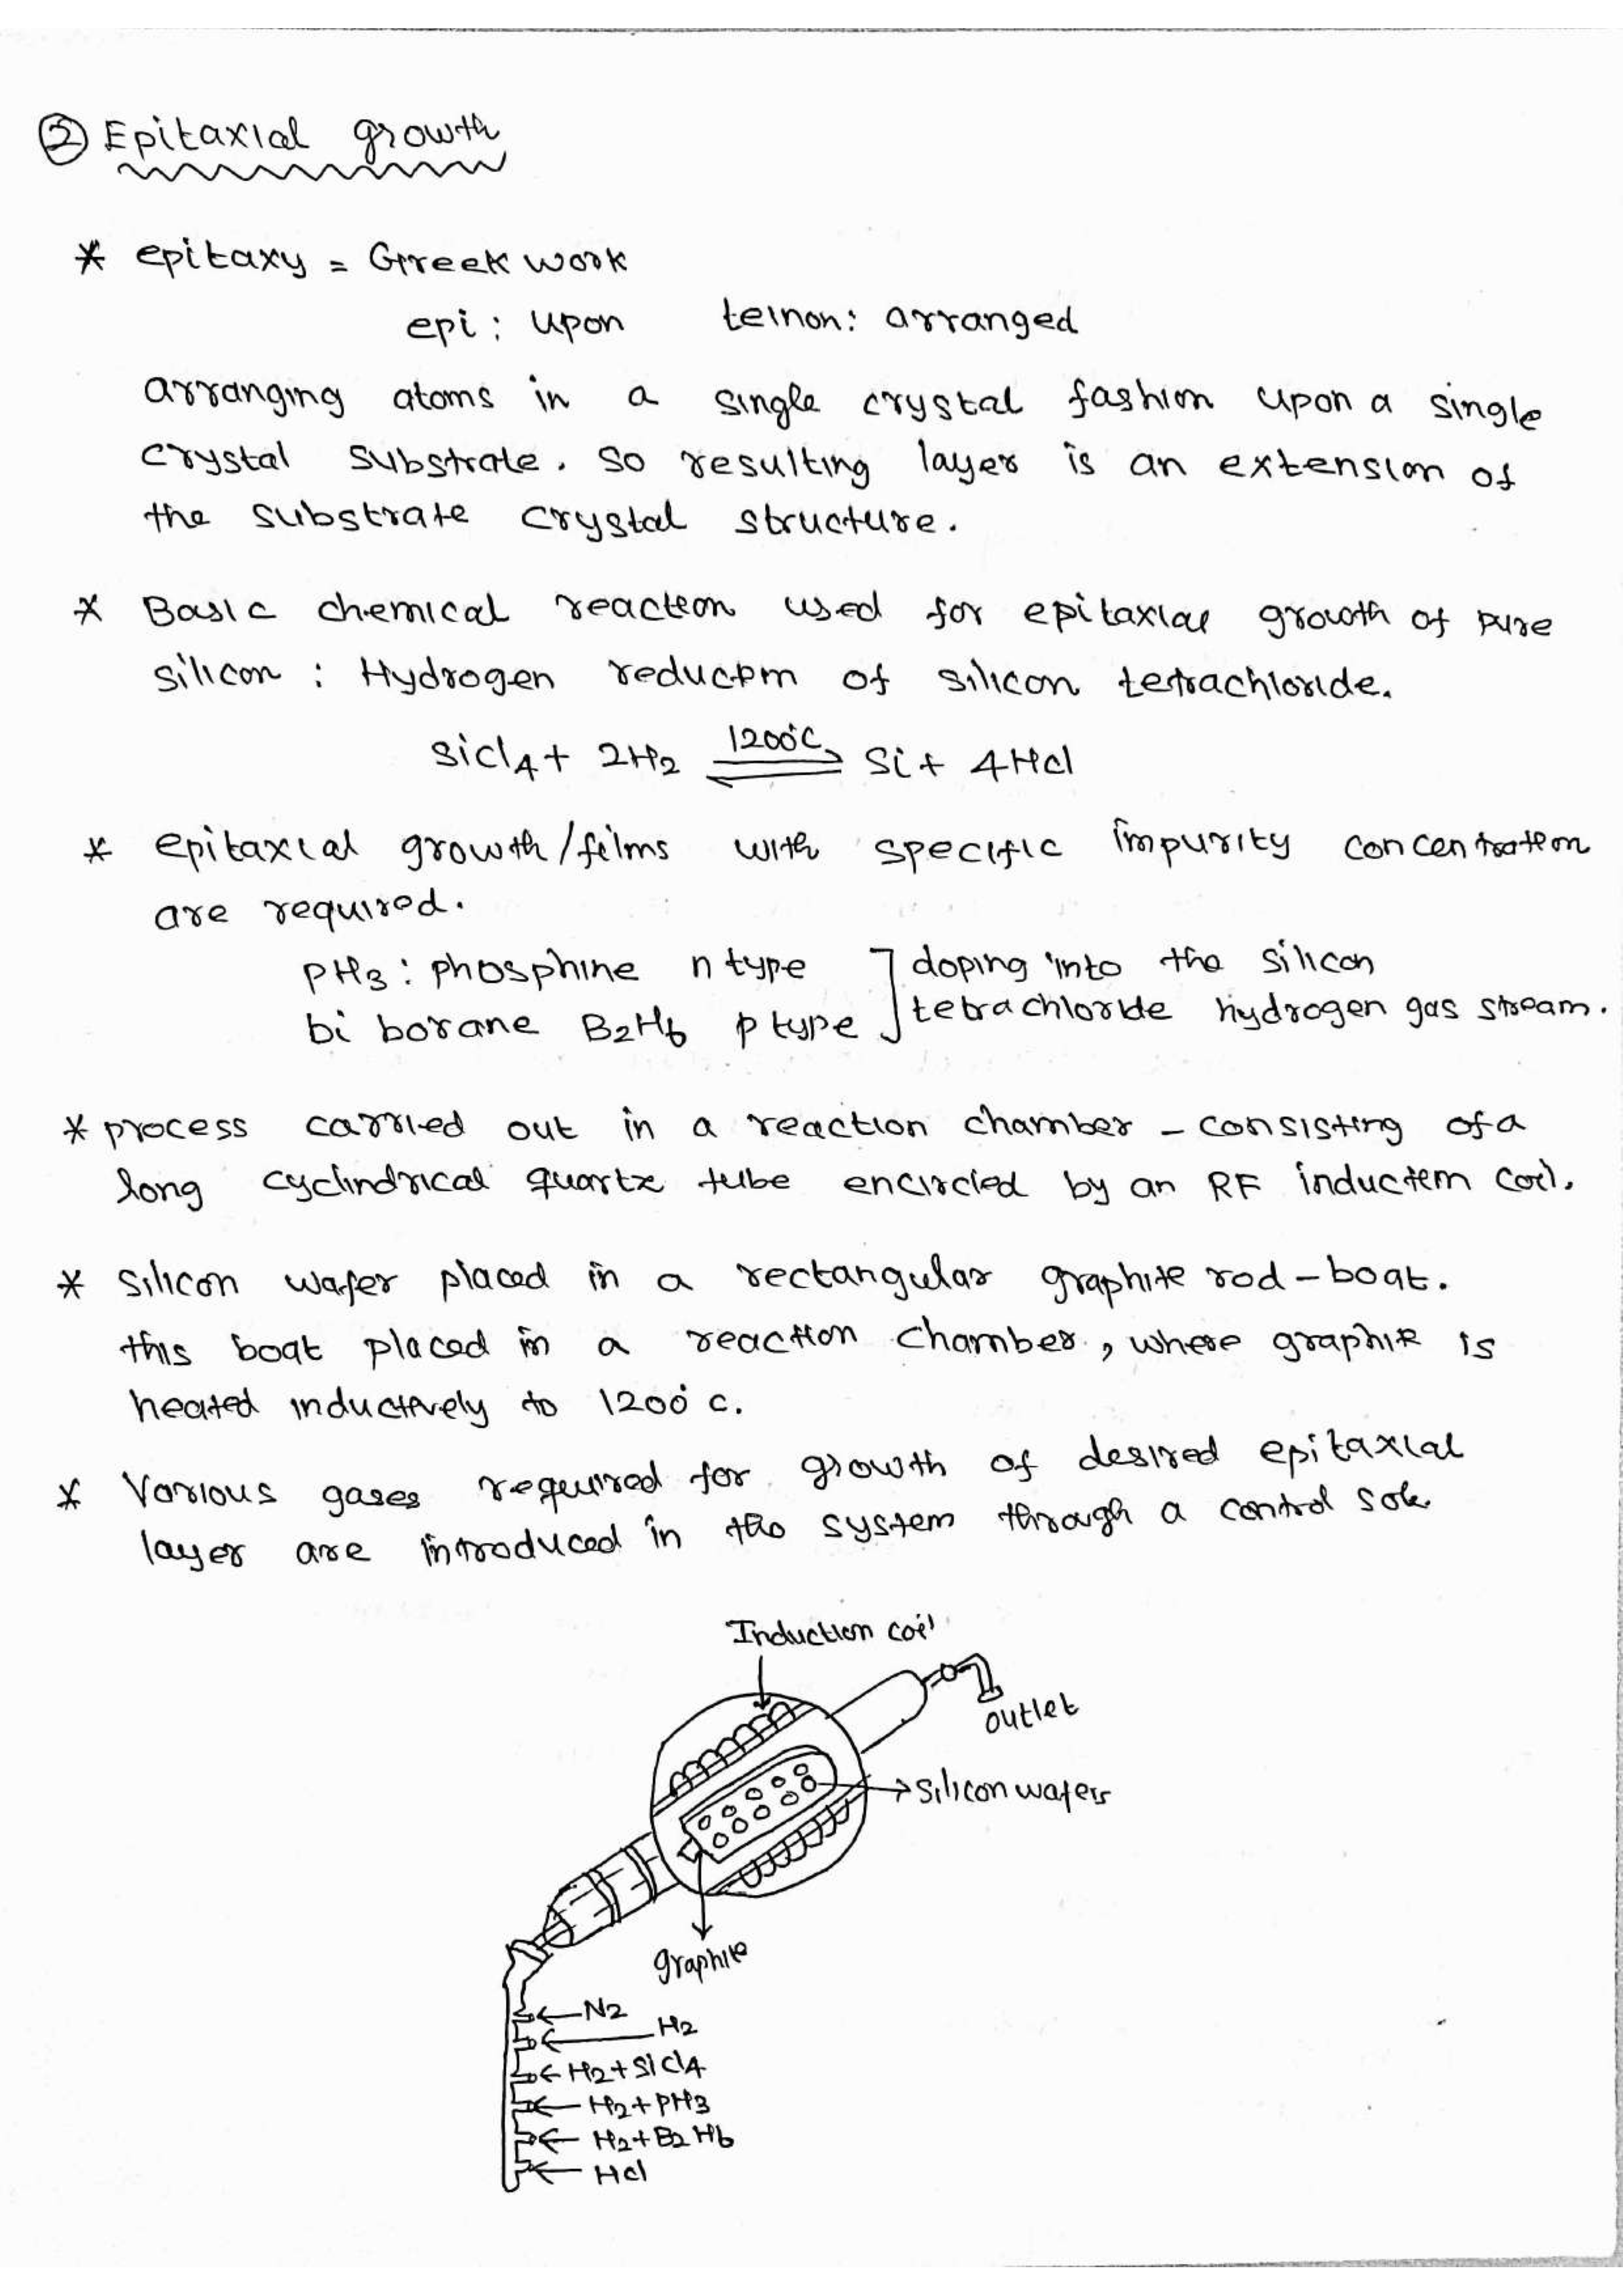 ② Epitaxial growth
* epitaxy = Greek work
epi : upon teinon: arranged
arranging atoms in a single crystal fashion upon a single
crystal substrate. so resulting layer is an extension of
the substrate crystal structure.
* Basic chemical reaction used for epitaxial growth of pure
silicon : Hydrogen reduction of silicon tetrachloride.
SiCl4 + 2H2 ⇌ 1200°C Si + 4HCl
* epitaxial growth/films with specific impurity concentration
are required.
PH3 : phosphine n type ] doping into the silicon
bi borane B2H6 p type ] tetrachloride hydrogen gas stream.
* process carried out in a reaction chamber - consisting of a
long cyclindrical quartz tube encircled by an RF induction coil.
* Silicon wafer placed in a rectangular graphite rod - boat.
this boat placed in a reaction chamber, where graphite is
heated inductively to 1200°C.
* Various gases required for growth of desired epitaxial
layer are introduced in the system through a control
Induction coil
outlet
Silicon wafers
graphite
N2
H2
H2+SiCl4
H2+PH3
H2+B2H6
HCl